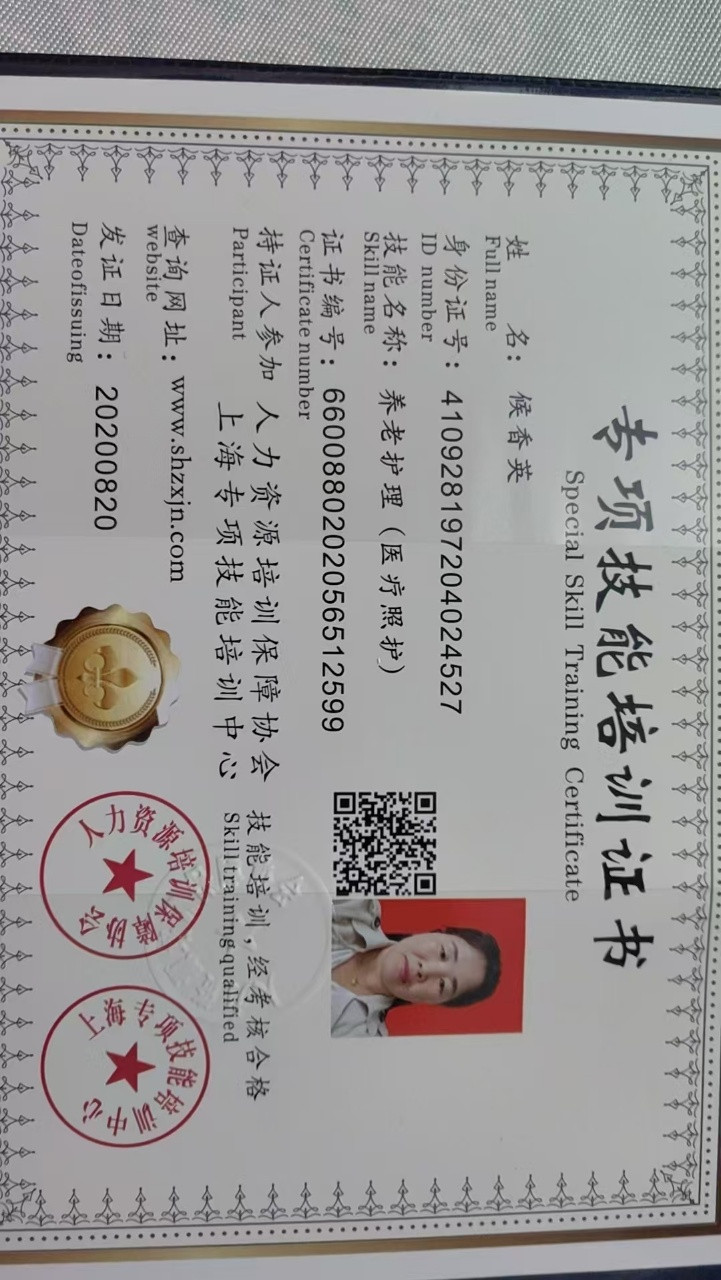 专项技能培训证书
Special Skill Training Certificate
姓 名：候香英
Full name
身份证号：410928197204024527
ID number
技能名称：养老护理（医疗照护）
Skill name
证书编号：6600880202056512599
Certificate number
持证人参加 人力资源培训保障协会 技能培训，经考核合格
上海专项技能培训中心
Participant
Skill training qualified
查询网址：www.shzxjn.com
website
发证日期：20200820
Dateofissuing
人力资源培训保障协会
上海专项技能培训中心